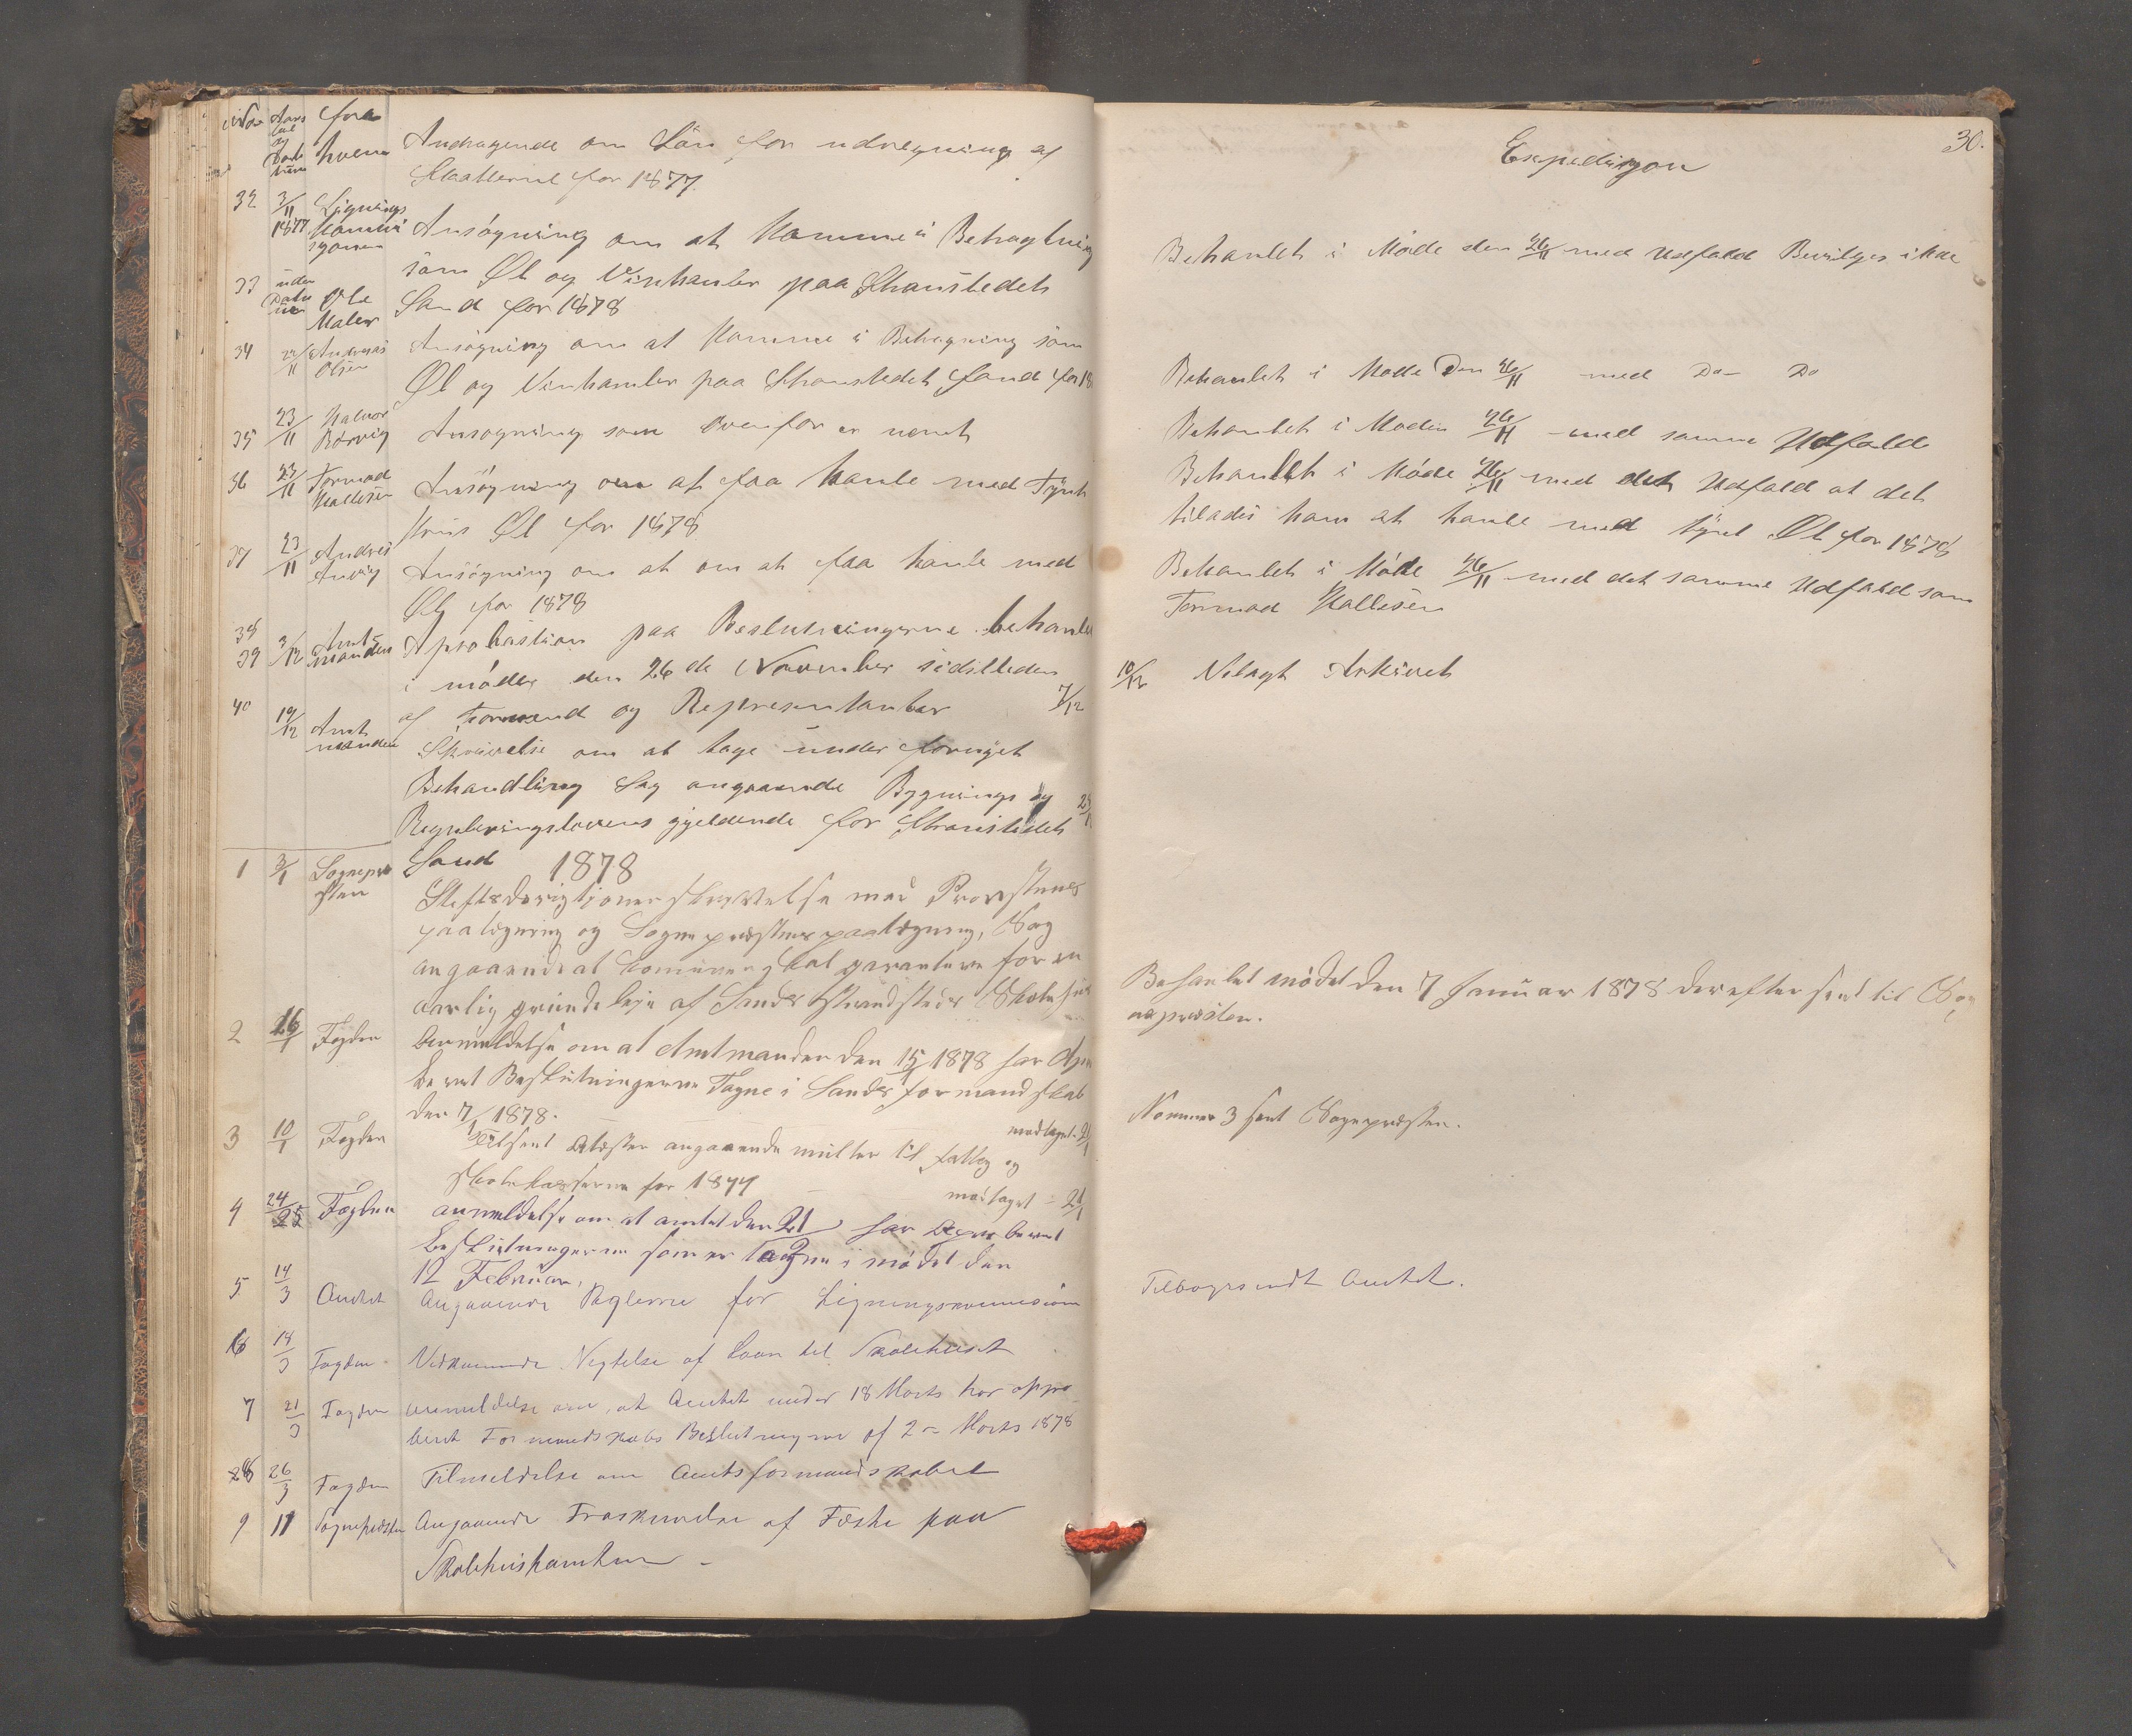 No Aars fra
tal
og
Dato hvem
Andragende om Lön for udregning af
Skatterne for 1877.
32 3/11 1877 Lignings Kommisjonen
Ansögning om at komme i Betragtning
33 uden Datum Ole Maler
som Öl og Vinhanler paa Stranstedet
Sand for 1878
34 22/11 Andreas Olsen Ansögning om at komme i Betragning som
Öl og Vinhanler paa Stranstedet Sand for 18
35 23/11 Halvor Börvig Ansogning som ovenfor er nevnt
36 23/11 Tormod Kallesen Ansögning om at faa hanle med Tynt
Öl for 1878
37 23/11 Andres Anvig Ansögning om at om at faa hanle med
Öl for 1878
38
39 3/12 Amtmanden Aprobastion paa Beslutningerne behanle
i mödes den 26de November sidstleden
af Formend og Representanter 7/12
40 19/12 Amtmanden Skrivelse om at tage under fornyet
Behandling Sag angaaende Bygnings og
Reguleringslovens gjeldende for Stranstedet
Sand 1878
1 3/1 Sognepresten
Stiftsderigtioner skrivelse med Provstens
paategning og Sognepræstens paategning, Sag
angaaende at Komunen skal garantere for en
aarlig grundeleje af Sands Strandsteds Skolehus
2 16/1 Fogden Anmeldelse om at Amtmanden den 15/1 1878 har Apro
beret Beslutningerne Tagne i Sands formandskab
den 7/1 1878. modtaget 21/1
3 10/1 Fogden Tilsent Atester angaaende mulkter til fattig og
skolekasserne for 1877 modtaget 21/1
4 24/25 Fogden anmeldelse om at amtet den 21 har Aprobere​t
beslutningerne som er tagne i mödet den
12 Februar.
5 14/3 Amtet Angaaende Reglerne for Ligningskommission
6 18/3 Fogden Vedkommende Negtelse af Laan til Skolehuset
7 21/3 Fogden Anmeldelse om, at Amtet under 18 Marts har appro
beret Formandskabs Beslutningerne af 2 Marts 1878
8 26/3 Fogden Tilmeldelse om Amtsformandskabet
9 11 Sognepresten Angaaende Fraskrivelse af Feste paa
Skolehustomten
30.
Expedisjon
Behanlet i Möde den 26/11 med Udfald Bevilges ikke
Behanlet i Mode Den 26/11 med Do - Do
Behanlet i Moden 26/11 med samme Udfald
Behanlet i Möde 26/11 med det Udfald at det
tilades ham at hanle med tynt Öl for 1878
Behanlet i Möde 26/11 med det samme Udfald som
Tormod Kallesen
10/12 Nelagt Arkivet
Behanlet mödet den 7 Januar 1878 derefter sent til Sog
nepresten.
Nommer 3 sent Sognepræsten.
Tilbagesendt Amtet.